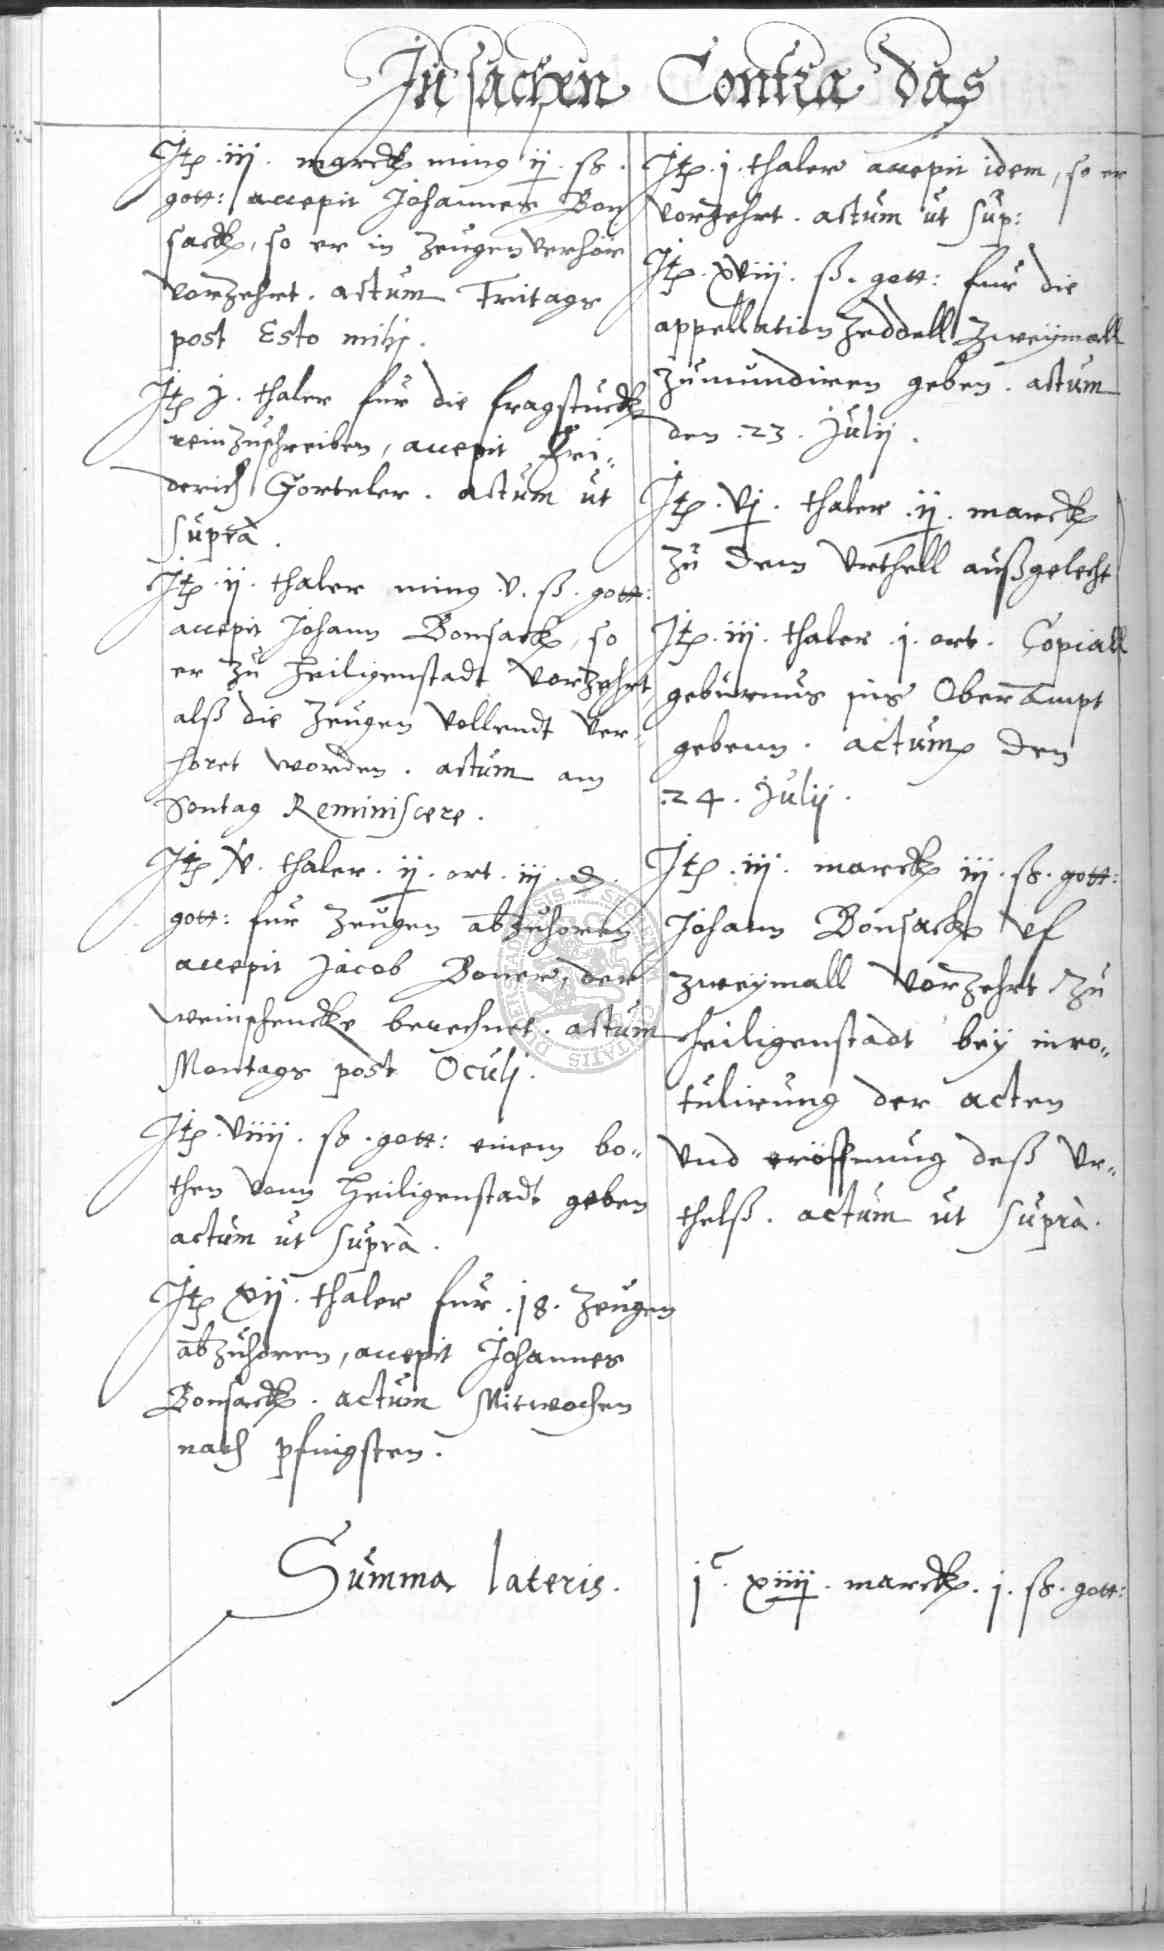 In sachen Contra das
Itp .iij. marck ming ij . ß .
gott: accepit Johannes Bon
sack, so er in zeugen verhör
vorzehrt . actum Fritags
post Esto mihj .
Itp j . thaler fur die fragstuck
reinzuschreiben, accepit Fri„
derich Gorteler . actum ut
supra .
Itp .ij . thaler ming .v. ß . gott:
accepit Johann Bonsack, so
er zu Heiligenstadt vorzehrt
alß die zeugen vollendt ver„
horet worden . actum am
Sontag Reminiscere .
Itp v . thaler . ij . ort . iij . d .
gott: fur zeugen abzuhoren
accepit Jacob Boner, der
weinschencke berechnet . actum
Montags post Oculj .
Itp . viiij . ß . gott: einem bo„
then vonn Heiligenstadt geben
actum ut supra .
Itp xij . thaler fur . 18 . zeugen
abzuhoren, accepit Johannes
Bonsack . actum Mitwochen
nach pfingsten .
Itp . j . thaler accepit idem, so er
vorzehrt . actum ut sup:
Itp . xviij . ß . gott: fur die
appellation zeddell zweymall
zumundiren geben . actum
den . 23 . Julij .
Itp . vj . thaler . ij . marck
zu dem Urthell außgelecht
Itp . iij . thaler . j . ort . Copiall
geburnus ins Oberampt
gebenn . actum den
. 24 . Julij .
Itp . iij . marck iij . ß . gott:
Johann Bonsack uf
zweymall vorzehrt zu
Heiligenstadt bey inro„
tulirung der acten
vnd eröffnung deß Vr„
thelß . actum ut supra .
Summa lateris . jc . xiiij . marck . j . ß . gott: